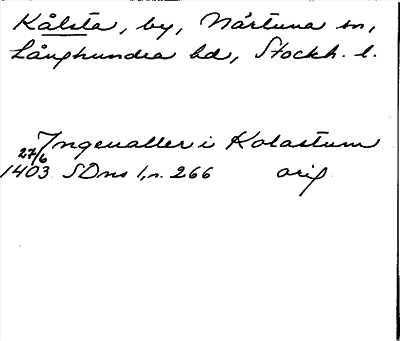 Kålsta, by, Närtuna sn,
Långhundra hd, Stockh. l.
Ingeualler i Kolastum
27/6
1403 SDns 1, s. 266 orig